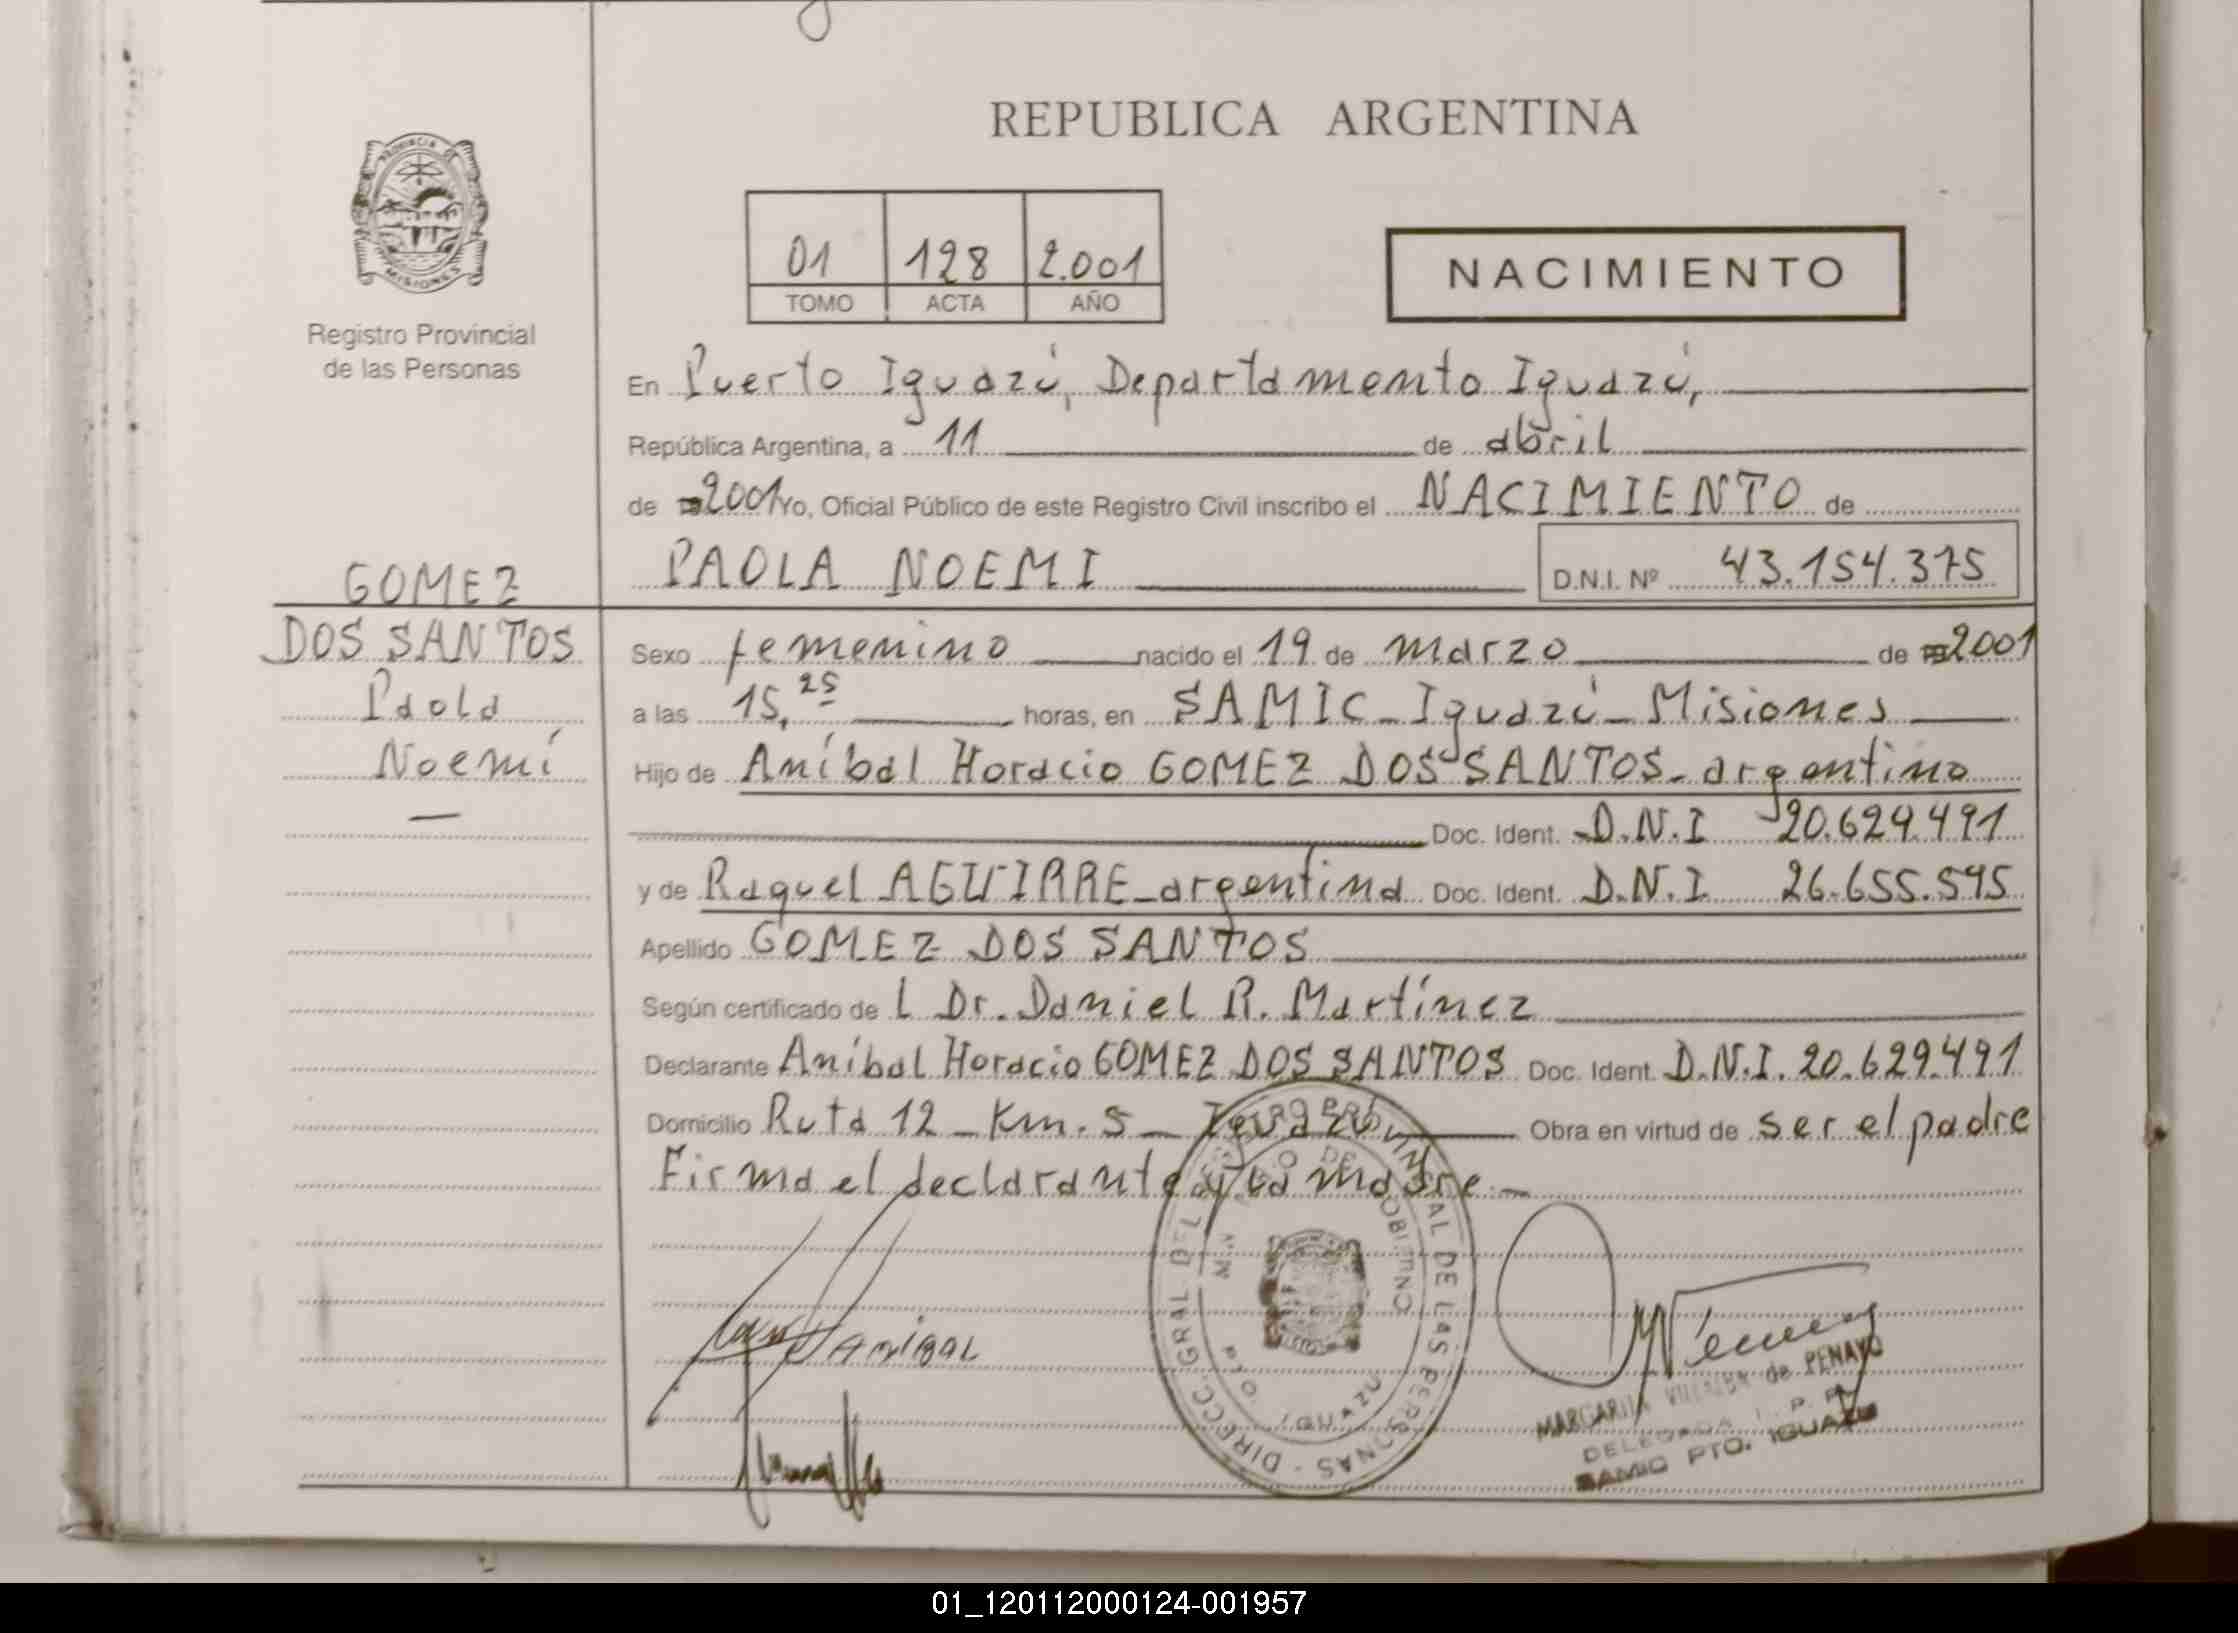 REPUBLICA ARGENTINA
PROVINCIA DE
MISIONES
Registro Provincial
de las Personas
01 128 2.001
TOMO ACTA AÑO
NACIMIENTO
En Puerto Iguazú, Departamento Iguazú,
República Argentina, a 11 de abril
de 2001 Yo, Oficial Público de este Registro Civil inscribo el NACIMIENTO de
PAOLA NOEMI D.N.I. Nº 43.154.375
GOMEZ
DOS SANTOS
Paola
Noemí
Sexo femenino nacido el 19 de marzo de 2001
a las 15,25 horas, en SAMIC - Iguazú - Misiones
Hijo de Aníbal Horacio GOMEZ DOS SANTOS - argentino
Doc. Ident. D.N.I 20.629.491
y de Raquel AGUIRRE - argentina Doc. Ident. D.N.I 26.655.595
Apellido GOMEZ DOS SANTOS
Según certificado de l Dr. Daniel R. Martínez
Declarante Aníbal Horacio GOMEZ DOS SANTOS Doc. Ident. D.N.I. 20.629.491
Domicilio Ruta 12 - Km. 5 - Iguazú Obra en virtud de ser el padre
Firma el declarante y la madre.-
ANIBAL
DIRECC. GRAL. DEL REGISTRO PROVINCIAL DE LAS PERSONAS
PTO. IGUAZU
MARGARITA VILLALBA de PENAYO
DELEGADA
SAMIC PTO. IGUAZU
01_120112000124-001957